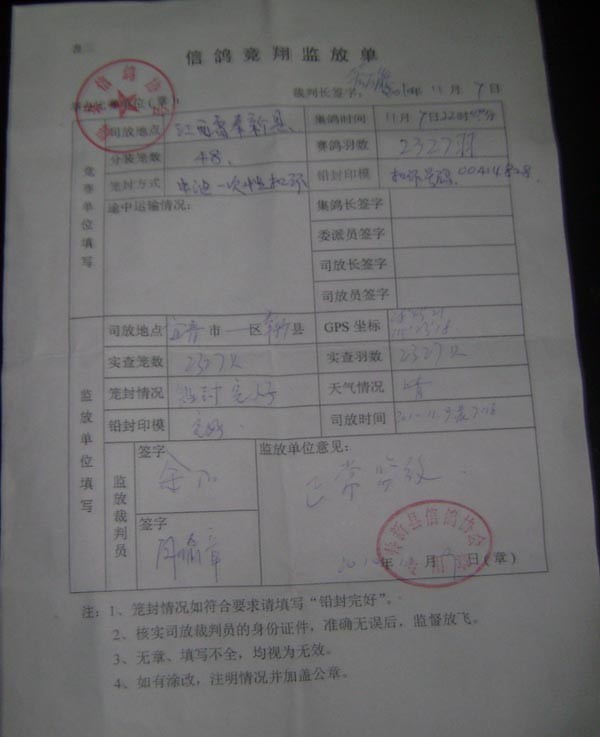 表三
信鸽竞翔监放单
裁判长签字： 2010年 11月 9日
单位(章)
竞赛单位填写
司放地点 江西省奉新县 集鸽时间 11月9日22时 分
分装笼数 48. 赛鸽羽数 2327羽
笼封方式 一次性扣环 铅封印模
途中运输情况： 集鸽长签字
委派员签字
司放长签字
司放员签字
监放单位填写
司放地点 宜春市 区奉新县 GPS 坐标
实查笼数 2327只 实查羽数 2327只
笼封情况 铅封完好 天气情况 晴
铅封印模 完好 司放时间
监放裁判员 签字 监放单位意见：
正常监放
签字
奉新县信鸽协会
年 月 日(章)
注：1、笼封情况如符合要求请填写“铅封完好”。
2、核实司放裁判员的身份证件，准确无误后，监督放飞。
3、无章、填写不全，均视为无效。
4、如有涂改，注明情况并加盖公章。